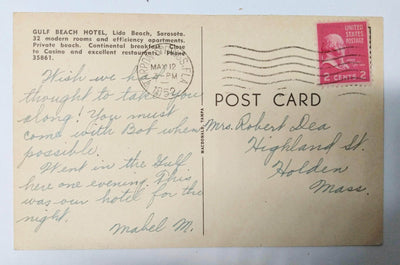 GULF BEACH HOTEL, Lido Beach, Sarasota.
32 modern rooms and efficiency apartments.
Private beach. Continental breakfast. Close
to Casino and excellent restaurants. Phone
35861.
Wish we had
thought to take you
along! You must
come with Bob when
possible.
Went in the Gulf
here one evening. This
was our hotel for the
night.
Mabel M.
MACDONALD, TAMPA
MAY 12
PM
1952
UNITED STATES
POSTAGE
2 CENTS 2
POST CARD
Mrs. Robert Dea
Highland St.
Holden
Mass.